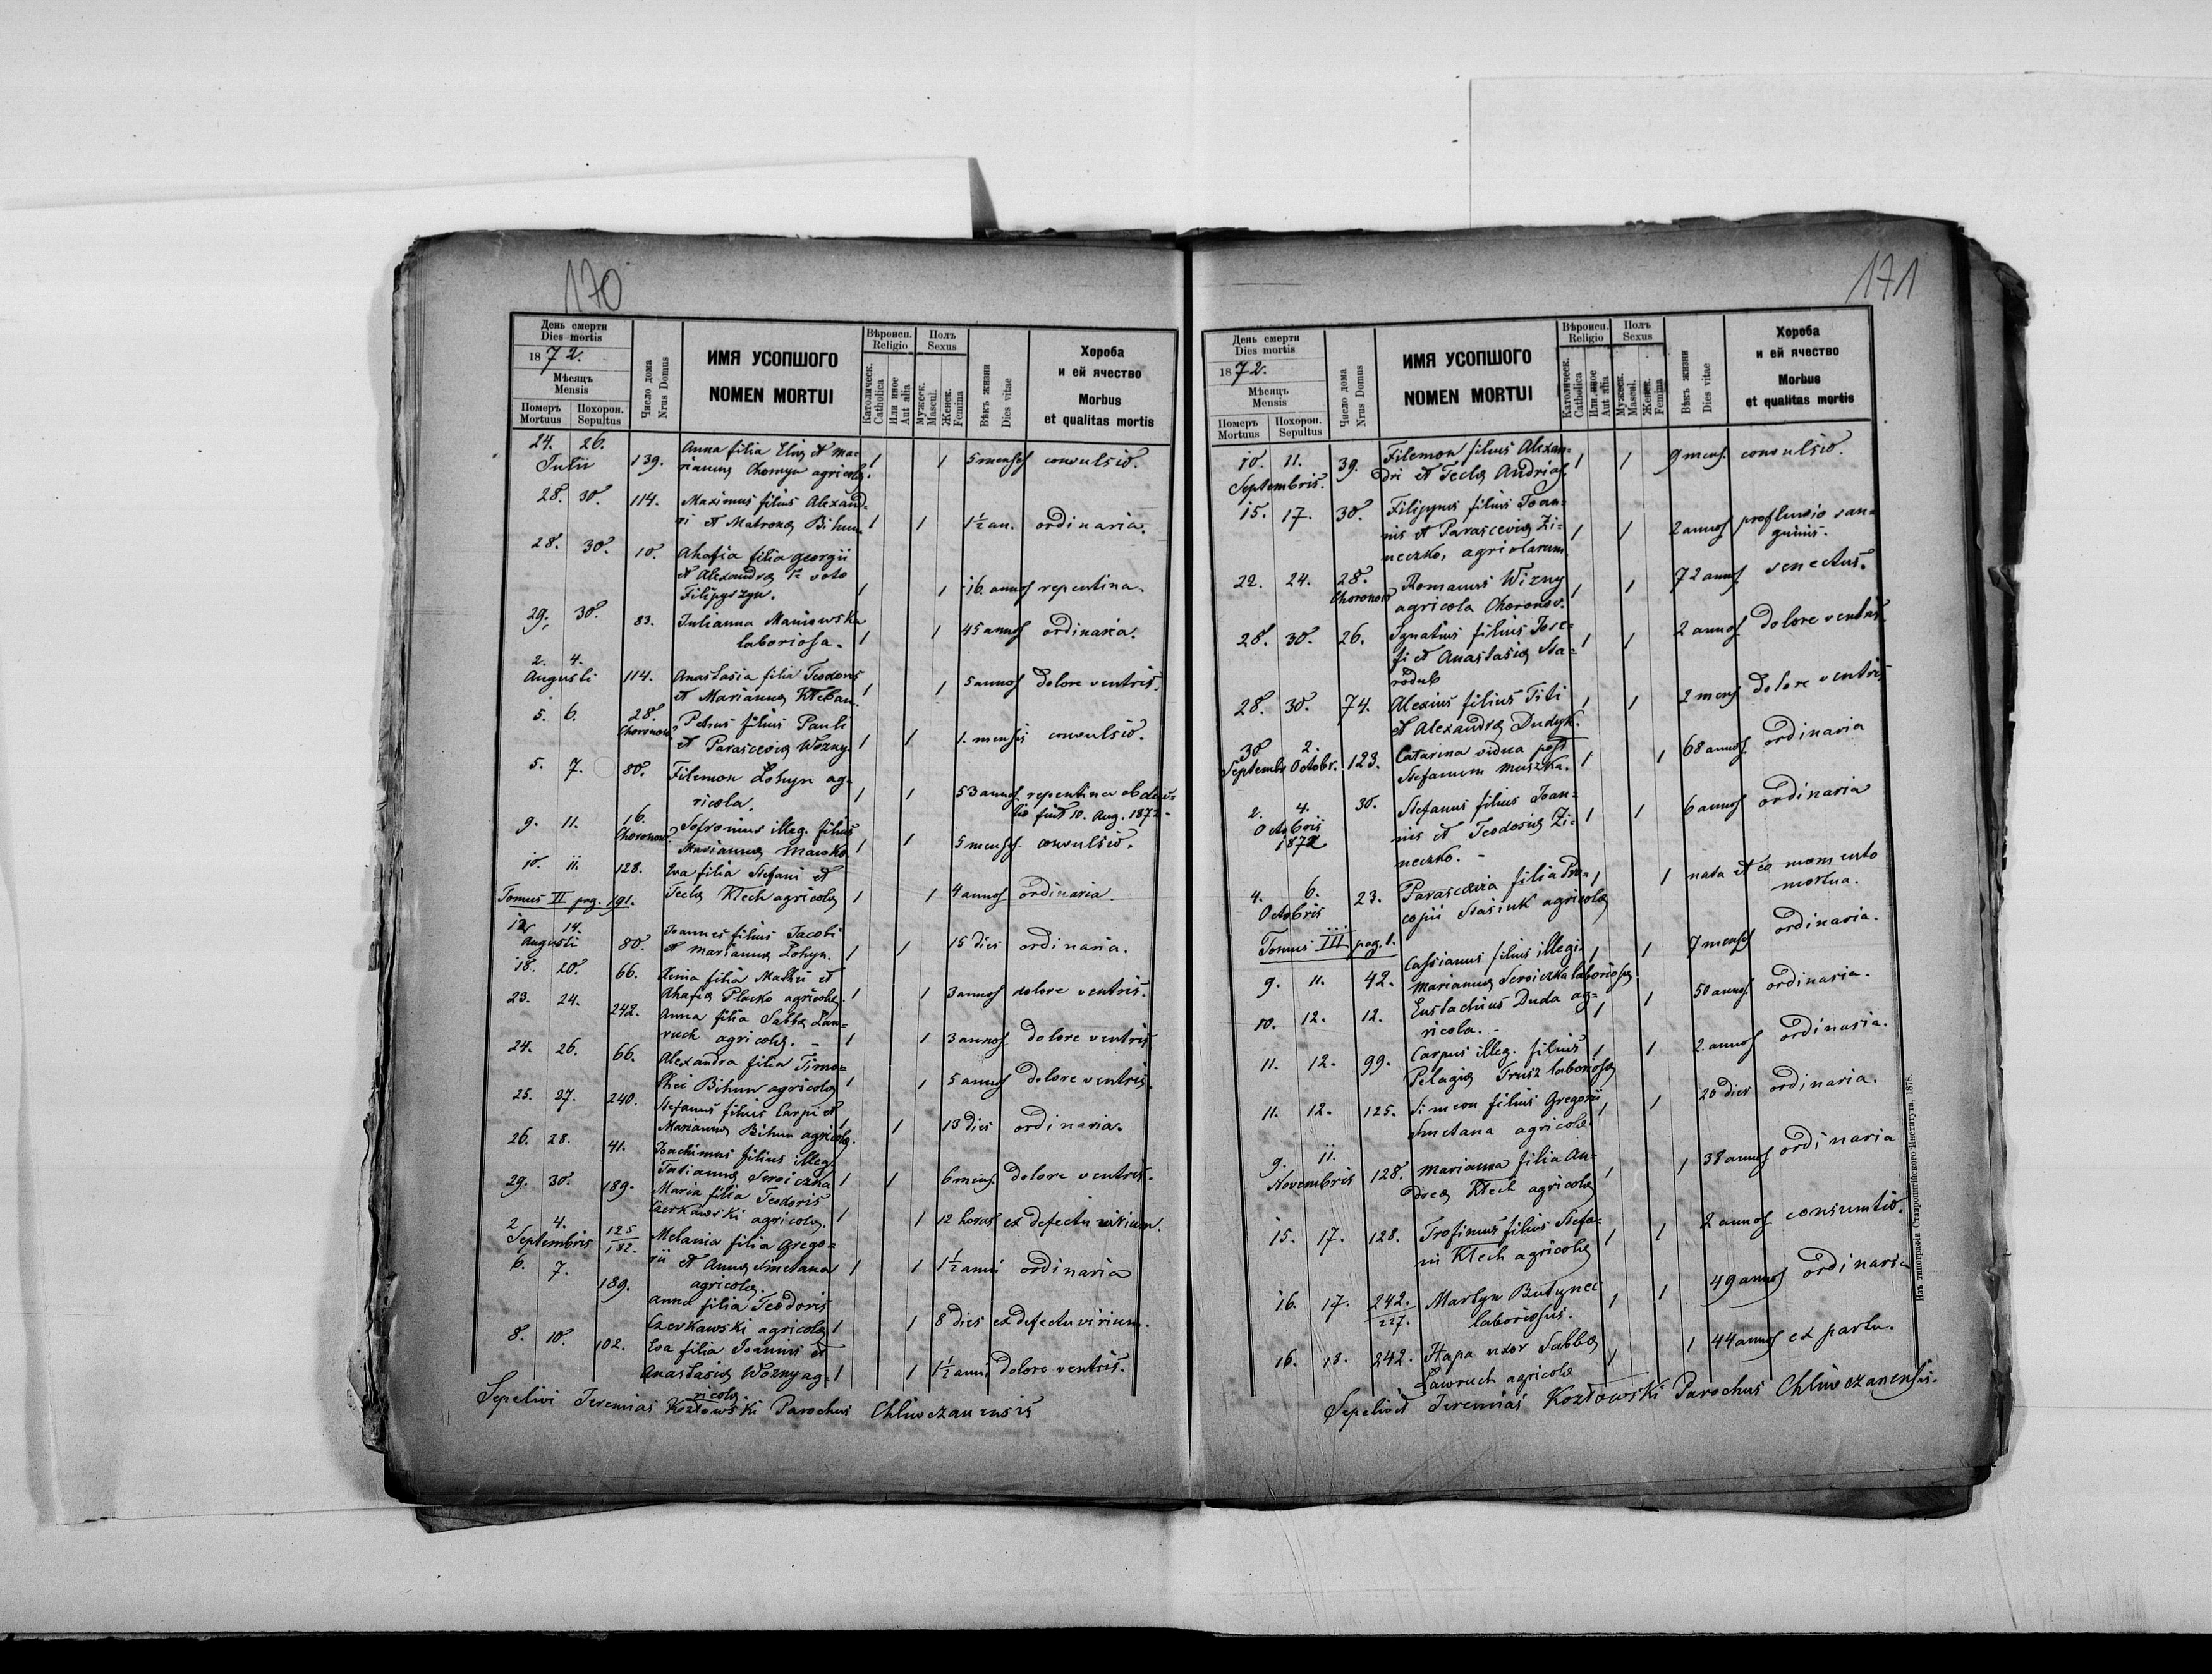 170
День смерти
Dies mortis
1872.
Мѣсяцъ
Mensis
Померъ Mortuus
Похорон. Sepultus
Число дома
Nrus Domus
ИМЯ УСОПШОГО
NOMEN MORTUI
Вѣроисп.
Religio
Католическ.
Catholica
Или иное
Aut alia
Полъ
Sexus
Мужеск.
Mascul.
Женск.
Femina
Вѣкъ жизни
Dies vitae
Хороба
и ей ячество
Morbus
et qualitas mortis
24. 26. Anna filia Eliæ et Ma-
Julii 139. riannæ Chomyn agricolæ. 1 1 5 menses convulsio.
28. 30. 114. Maximus filius Alexand-
ri et Matronæ Bihun 1 1 1½ an. ordinaria.
28. 30. 10. Ahafia filia Georgii
et Alexandræ 1º voto
Filipyszyn. 1 1 16. annos repentina.
29. 30. 83. Julianna Maniowska
laboriosa. 1 1 45 annos ordinaria.
2. 4.
Augusti 114. Anastasia filia Teodoris
et Mariannæ Kleban 1 1 5 annos dolore ventris.
5. 6. 28. Petrus filius Pauli
Choronow et Parasceviæ Wozny. 1 1 1. mensis convulsio.
5. 7. 80. Filemon Lohyn ag-
ricola. 1 1 53 annos repentina obduc-
tio fuit 10. Aug. 1872
9. 11. 16. Sofronius illeg. filius
Choronow Mariannæ Macko 1 1 5 menses convulsio.
10. 11. 128. Eva filia Stefani et
Tomus II pag. 191. Teclæ Klech agricolæ 1 1 4 annos ordinaria.
12. 14. Joannes filius Jacobi
Augusti 80. et Mariannæ Lohyn. 1 1 15 dies ordinaria.
18. 20. 66. Xenia filia Mathei et
Ahafiæ Placko agricolæ. 1 1 3 annos dolore ventris.
23. 24. 242. Anna filia Sabbæ Law-
ruch agricolæ. - 1 1 3 annos dolore ventris
24. 26. 66. Alexandra filia Timo-
thei Bihun agricolæ 1 1 5 annos dolore ventris.
25. 27. 240. Stefanus filius Carpi et
Mariannæ Bihun agricolæ. 1 1 13 dies ordinaria.
26. 28. 41. Joachimus filius illeg.
Tatiannæ Seroiczka 1 1 6 mens. dolore ventris.
29. 30. 189. Maria filia Teodoris
Czerkawski agricolæ. 1 1 12 horas ex defectu virium.
2 4. 125
Septembris 182. Melania filia Grego-
rii et Annæ Smetana 1 1 1½ anni ordinaria
agricolæ.
6. 7. 189. Anna filia Teodoris
Czerkawski agricolæ 1 1 8 dies ex defectu virium.
8. 10. 102. Eva filia Joannis et
Anastasiæ Wozny ag- 1 1 1½ anni dolore ventris.
ricolæ.
Sepelivi Jeremias Kozłowski Parochus Chliwczanensis
171
День смерти
Dies mortis
1872.
Мѣсяцъ
Mensis
Померъ Mortuus
Похорон. Sepultus
Число дома
Nrus Domus
ИМЯ УСОПШОГО
NOMEN MORTUI
Вѣроисп.
Religio
Католическ.
Catholica
Или иное
Aut alia
Полъ
Sexus
Мужеск.
Mascul.
Женск.
Femina
Вѣкъ жизни
Dies vitae
Хороба
и ей ячество
Morbus
et qualitas mortis
10. 11. 39. Filemon filius Alexan-
Septembris. dri et Teclæ Andrias 1 1 9 mens. convulsio.
15. 17. 30. Filippus filius Joan-
nis et Parasceviæ Zi- 1 1 2 annos profluvio san-
neczko, agricolarum guinis.
22. 24. 28. Romanus Wizny 1 1 72 annos senectus.
Choronow agricola Choronow.
28. 30. 26. Ignatius filius Jose-
fi et Anastasiæ Sta- 1 1 2 annos dolore ventris
rodub
28. 30. 74. Alexius filius Titi 1 1 2 mens dolore ventris
et Alexandræ Dudyk.
30 2. Catarina vidua post
Septembr. Octobr. 123. Stefanum Muszka. 1 1 68 annos ordinaria
2. 4. 30. Stefanus filius Joan-
Octobris nis et Teodosiæ Zi- 1 1 6 annos ordinaria
1872 neczko. -
4. 6. 23. Parascevia filia Pro- 1 1 nata et eo momento
Octobris copii Stasiuk agricolæ mortua.
Tomus III pag. 1.
9. 11. 42. Cassianus filius illegi. 1 1 7 menses ordinaria.
Mariannæ Seroiczka laboriosæ
10. 12. 12. Eustachius Duda ag- 1 1 50 annos ordinaria.
ricola. -
11. 12. 99. Carpus illeg. filius 1 1 2. annos ordinaria.
Pelagiæ Trusz laboriosæ
11. 12. 125. Simeon filius Gregorii 1 1 20 dies ordinaria.
Smetana agricolæ.
9. 11.
Novembris 128. Marianna filia An- 1 1 38 annos ordinaria
dreæ Klech agricolæ
15. 17. 128. Trofimus filius Stefa- 1 1 2 annos consumtio.
ni Klech agricolæ
16. 17. 242. Martyn Butynec 1 1 49 annos ordinaria
227. laboriosus.
16. 18. 242. Hapa uxor Sabbæ 1 1 44 annos ex partu.
Lawruch agricolæ
Sepelivit Jeremias Kozłowski Parochus Chliwczanensis.
Изъ типографіи Ставропигійского Института, 1878.